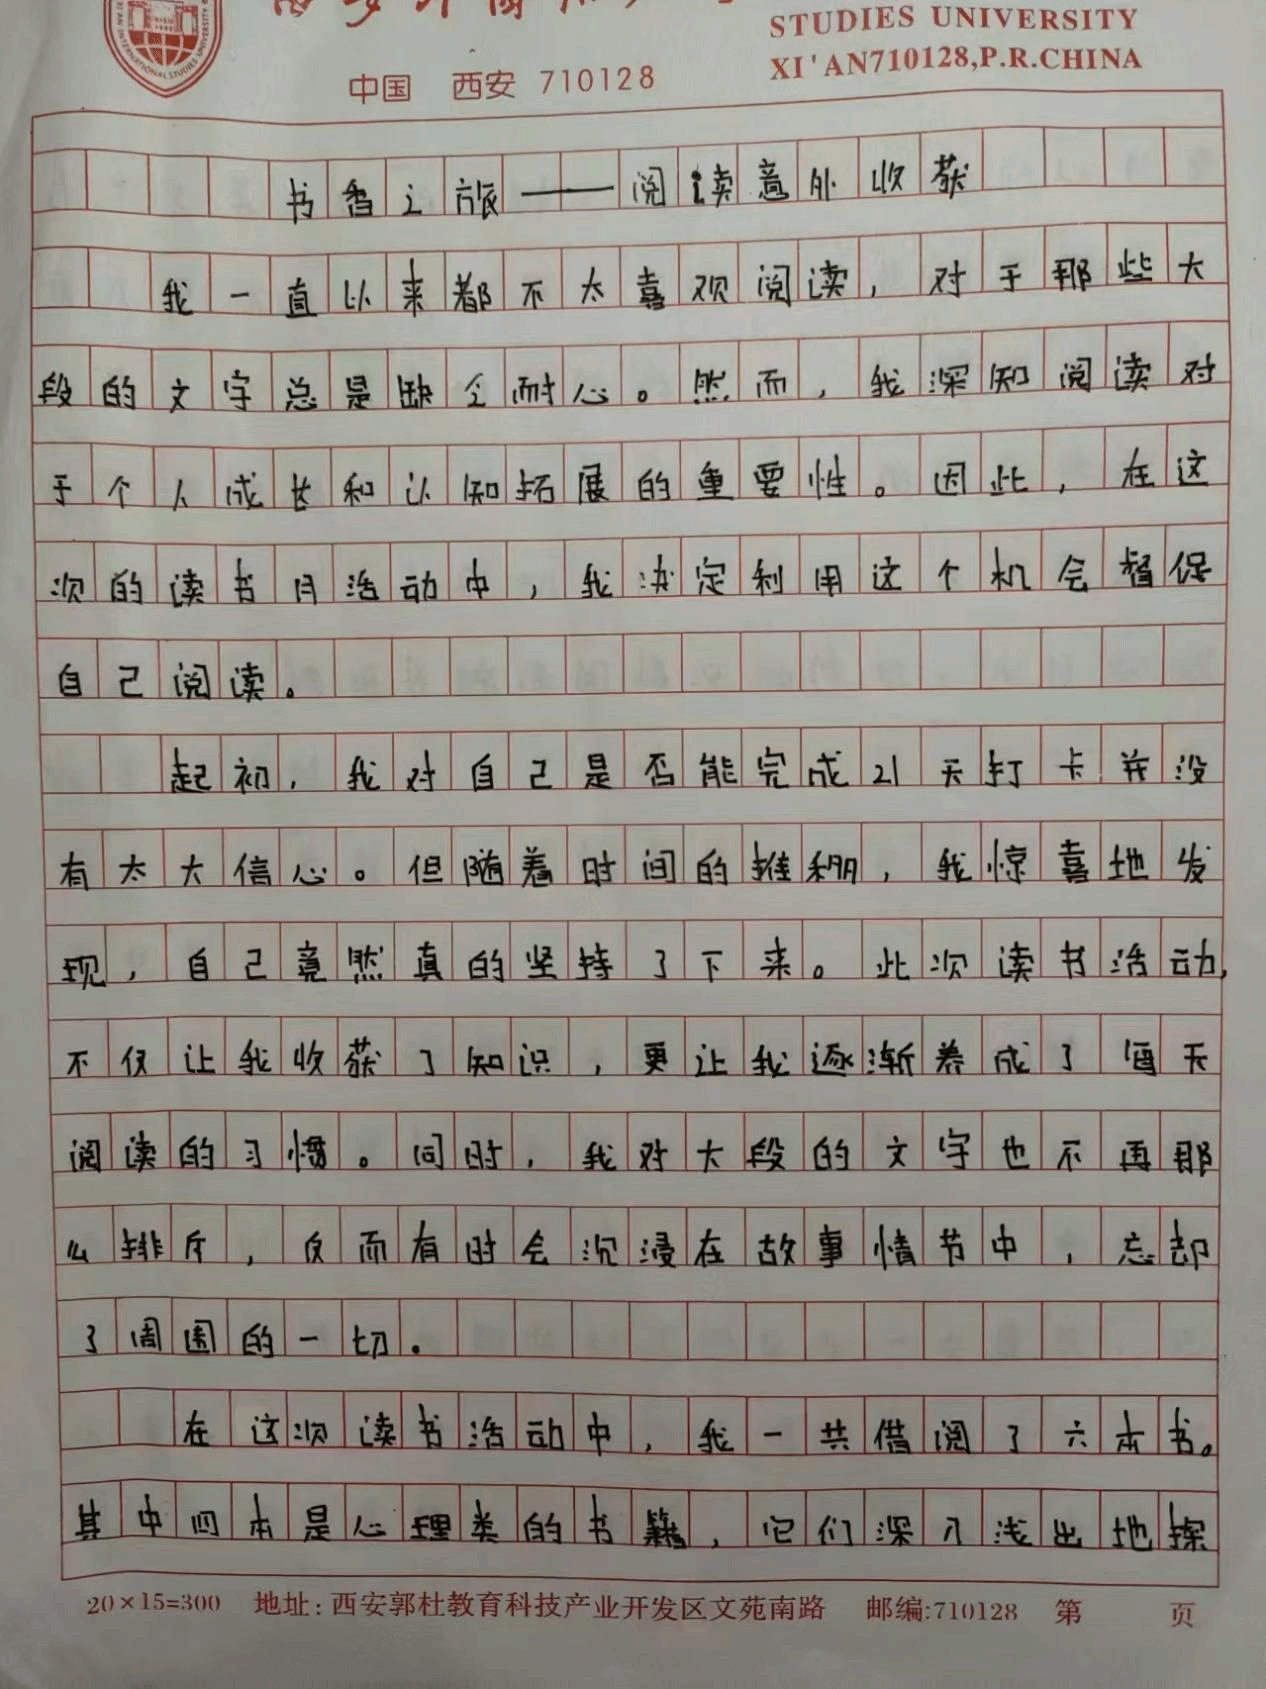 STUDIES UNIVERSITY
中国 西安 710128
XI'AN710128,P.R.CHINA
书香之旅——阅读意外收获
我一直以来都不太喜观阅读，对于那些大
段的文字总是缺乏耐心。然而，我深知阅读对
于个人成长和认知拓展的重要性。因此，在这
次的读书月活动中，我决定利用这个机会督促
自己阅读。
起初，我对自己是否能完成21天打卡并没
有太大信心。但随着时间的推移，我惊喜地发
现，自己竟然真的坚持了下来。此次读书活动，
不仅让我收获了知识，更让我逐渐养成了每天
阅读的习惯。同时，我对大段的文字也不再那
么排斥，反而有时会沉浸在故事情节中，忘却
了周围的一切。
在这次读书活动中，我一共借阅了六本书。
其中四本是心理类的书籍，它们深入浅出地探
20×15=300 地址:西安郭杜教育科技产业开发区文苑南路 邮编:710128 第 页